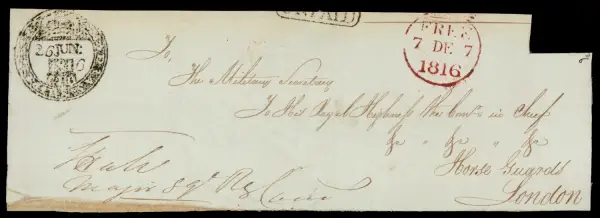 UNPAID
26 JUN:
FREE
7 DE 7
1816
To,
The Military Secretary
To His Royal Highness the Com.r in Chief
&c " &c " &c
Horse Guards
London
Major 89.t Reg